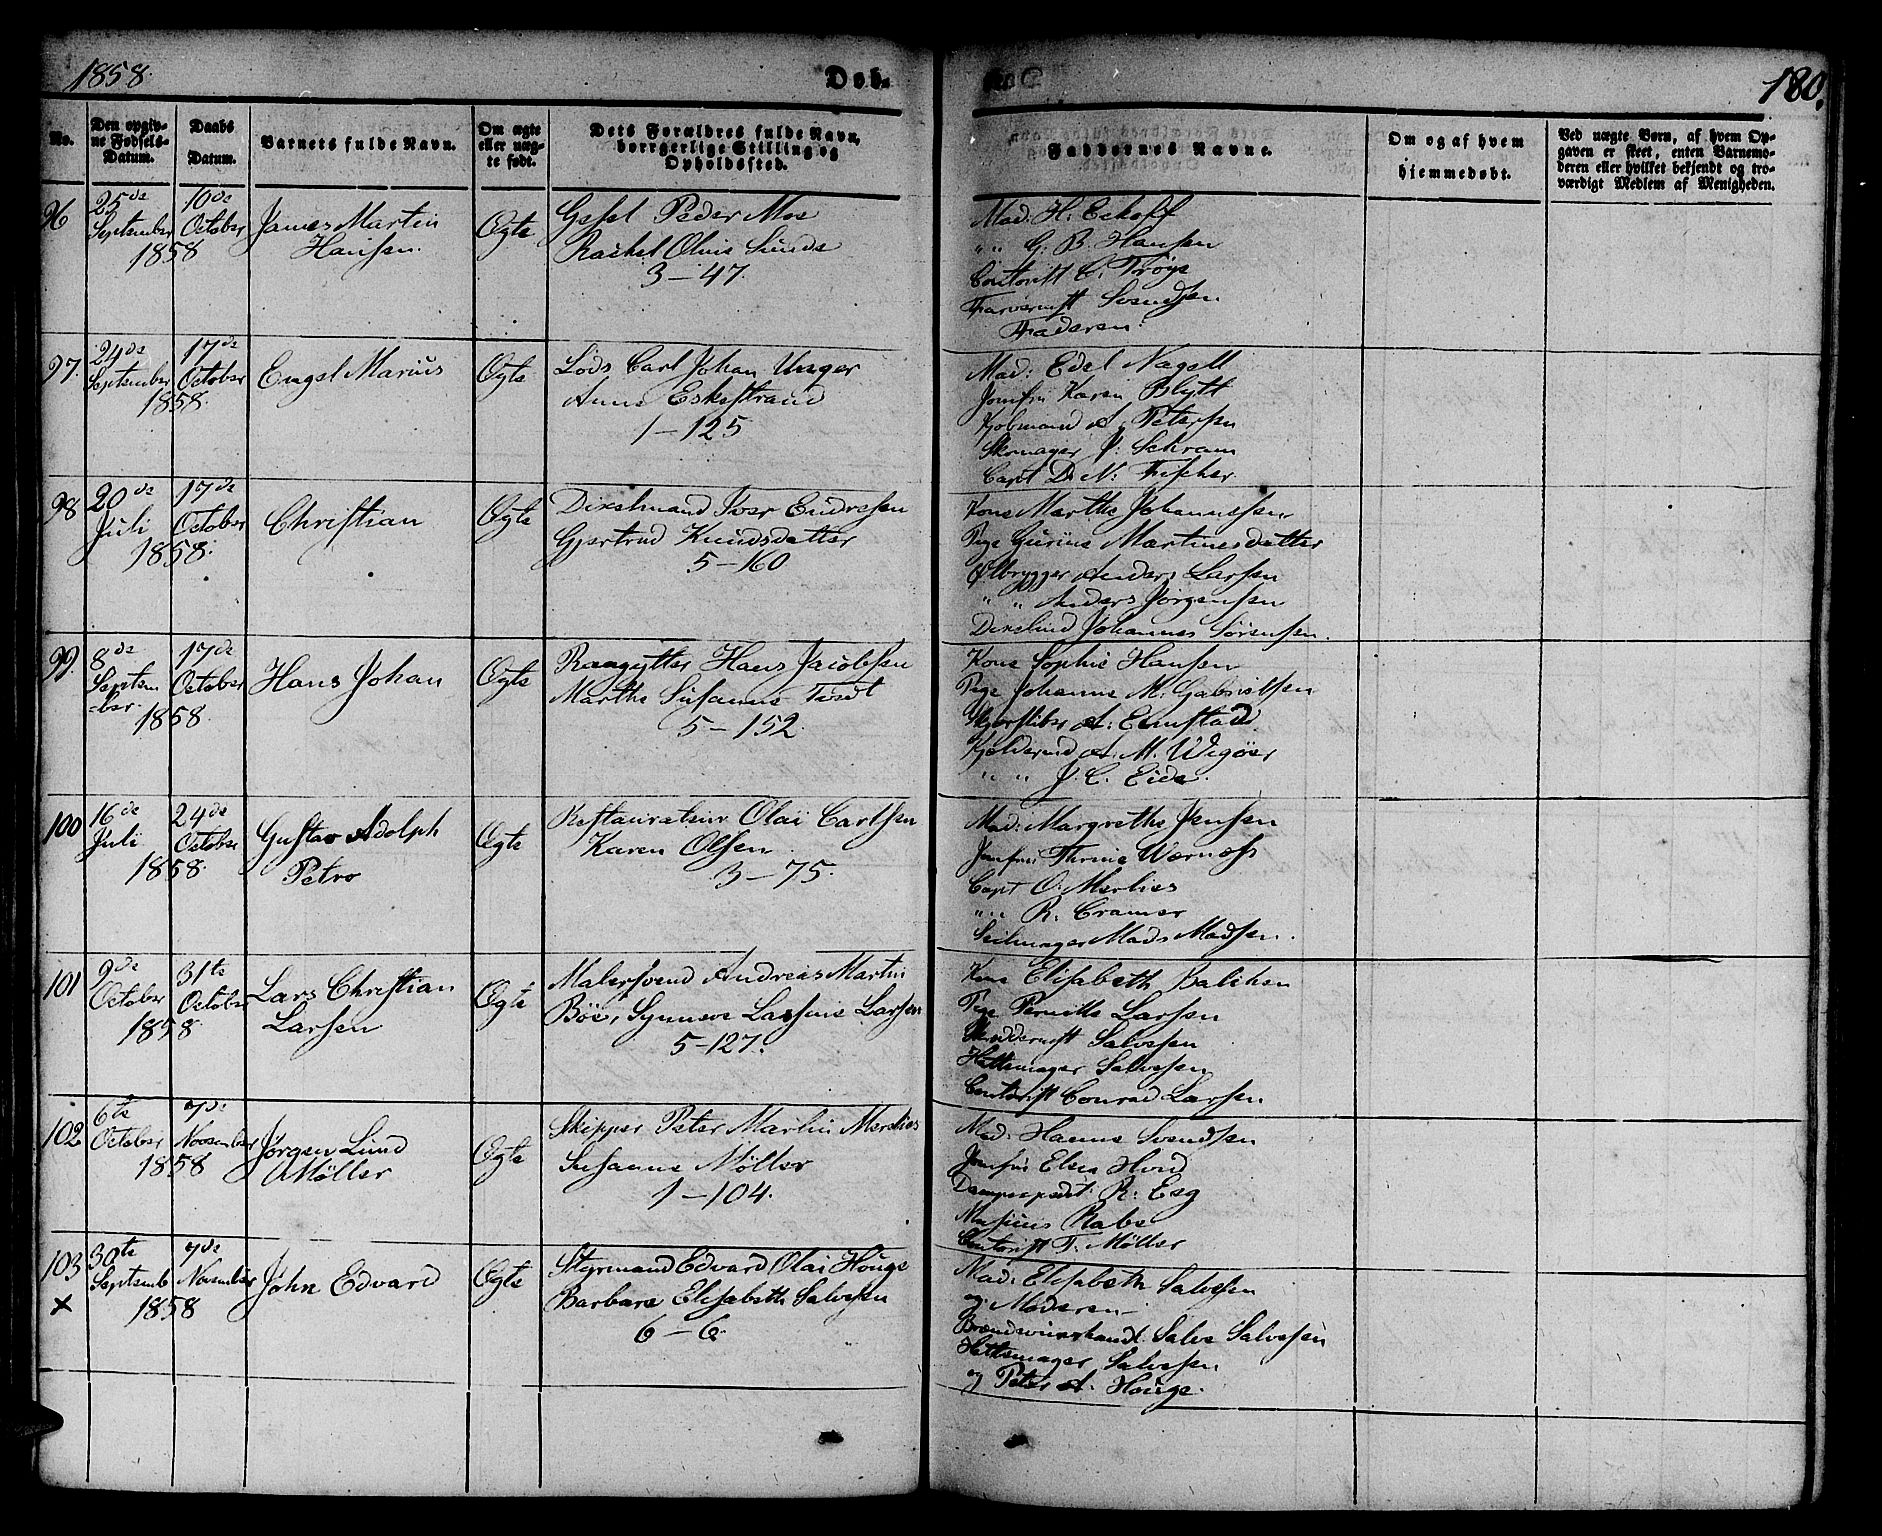 1858.
Døb-
180.
No.
Den opgiv-
ne Fødsels-
Datum.
Daabs
Datum.
Barnets fulde Navn.
Om ægte
eller uæg-
te født.
Dets Forældres fulde Navn,
borgerlige Stilling og
Opholdssted.
Faddernes Navne.
Om og af hvem
hjemmedøbt.
Ved uægte Børn, af hvem Op-
gaven er skeet, enten Barnemo-
deren eller hvilket bekjendt og tro-
værdigt Medlem af Menigheden.
96
25de
September
1858
10de
October
James Martin
Hansen.
Ægte
Gesel Peder Moe
Rachel Oline Sunde
3-47.
Mad: H: Eckoff
" " G: B. Hansen
Contorist C. Trøye
Farversvst Svendsen
Faderen.
97.
24de
September
1858.
17de
October
Engel Marius
Ægte
Lods Carl Johan Unger
Anne Eskestrand
1-125
Mad: Edel Nagell
Jomfru Karen Blytt
Kjøbmand A. Petersen
Skomager P: Schram
Capt D. N: Fischer.
98
20de
Juli
1858.
17de
October
Christian
Ægte
Dixelmand Iver Endresen
Gjertrud Knudsdatter
5-160
Kone Marthe Johannessen
Pige Gurine Martinesdatter
Ølbrygger Anders Larsen
" " Anders Jørgensen
Dixelmd Johannes Sørensen.
99.
8de
Septem
-ber
1858.
17de
October
Hans Johan
Ægte
Hans Jacobsen
Marthe Susanne
5-152.
Kone Sophie Hansen
Pige Johanne M: Gabrielsen
A: Elmstad
A. M. Wigøer
" " J. C. Eide.
100
16de
Juli
1858.
24de
October
Gustav Adolph
Petro
Ægte
Restaurateur Olai Carlsen
Karen Olsen
3-75.
Mad: Margrethe Jensen
Jomfru Thrine Wernøss
Capt O. Merlies
" " R. Cramer
Seilmager Mads Madsen.
101
9de
October
1858
31te
October
Lars Christian
Larsen
Ægte
Malersvend Andreas Martin
Böe, Synneve Lassine Larsen
5-127.
Kone Elisabeth Balchen
Pige Pernille Larsen
Salvesen
Hattemager Salvesen
Contorist Conrad Larsen
102
6te
October
1858
7de
November
Jørgen Lund
Møller
Ægte
Skipper Peter Martin Merlies
Susanne Møller
1-104.
Mad: Hanne Svendsen
Jomfru Elsea Hvid
R: Esg
Musicus Rabe
Contorist T. Møller
103
x
30te
Septemb
1858
7de
November
John Edvard
Ægte
Styrmand Edvard Olai Houge
Barbara Elisabeth Salvesen
6-6.
Mad: Elisabeth Salvesen
og Moderen
Brændeviinshandl. Salve Salvesen
Hattemager Salvesen
og Peter A. Houge.